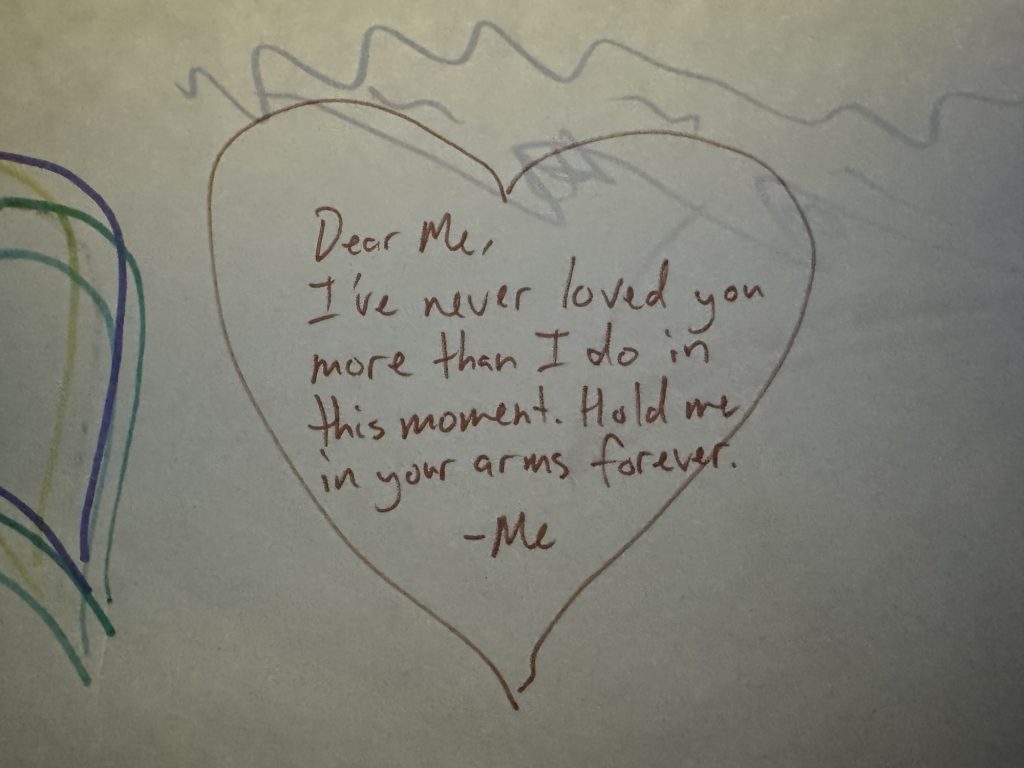 Dear Me,
I've never loved you
more than I do in
this moment. Hold me
in your arms forever.
-Me